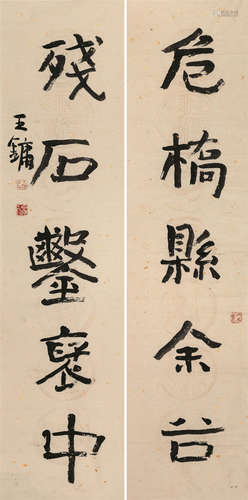 危橋縣余谷
殘石鑿褒中
王鏞